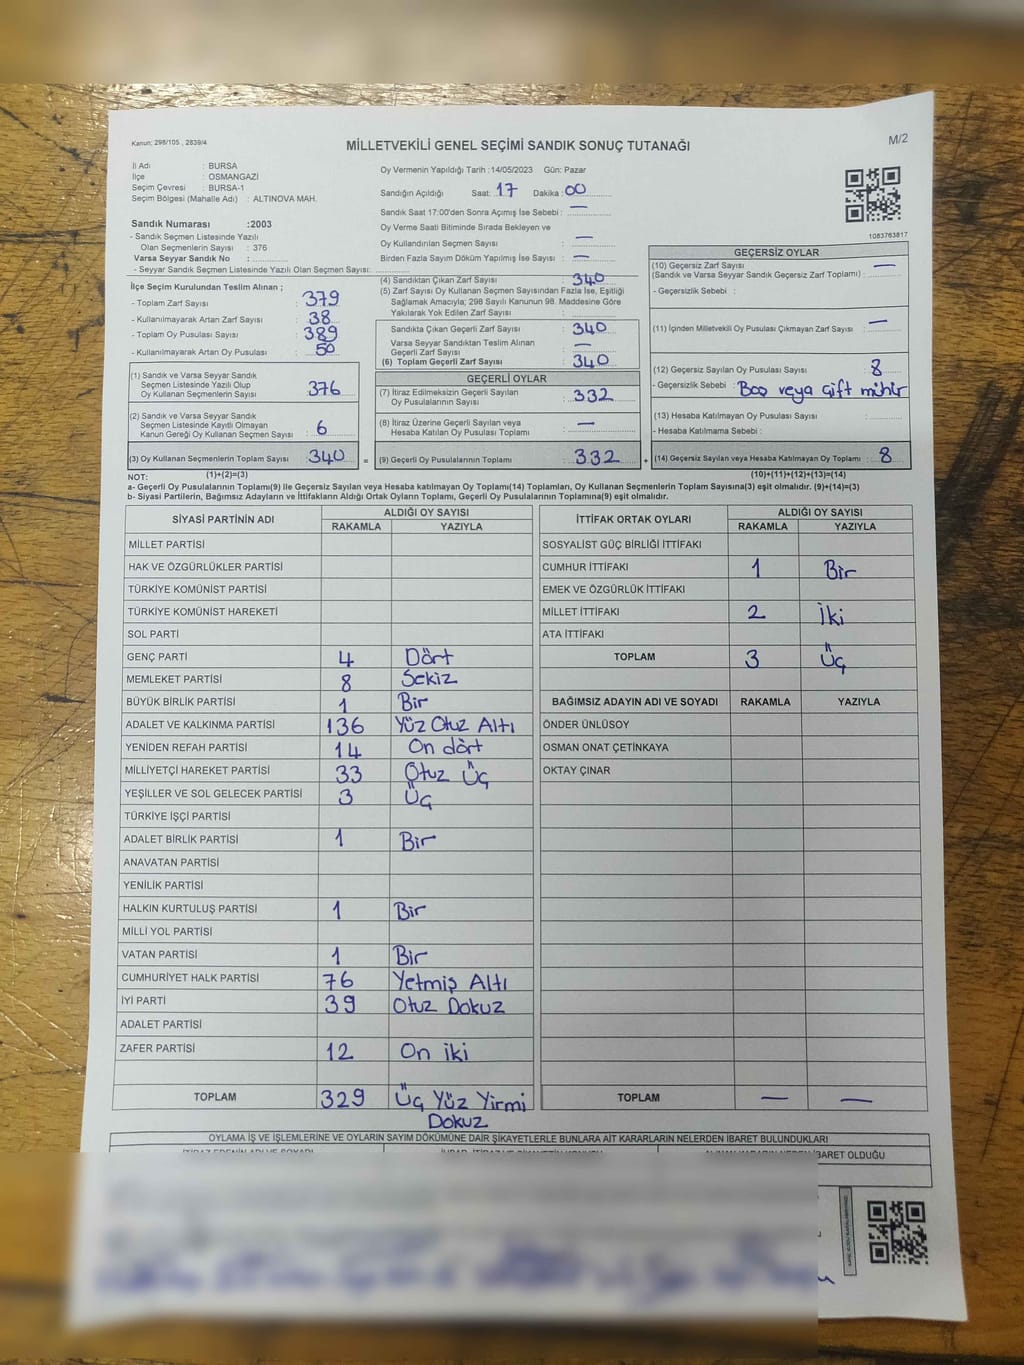 Kanun: 298/105 , 2839/4
MİLLETVEKİLİ GENEL SEÇİMİ SANDIK SONUÇ TUTANAĞI
M/2
İl Adı : BURSA
İlçe : OSMANGAZİ
Seçim Çevresi : BURSA-1
Seçim Bölgesi (Mahalle Adı) : ALTINOVA MAH.
Sandık Numarası :2003
- Sandık Seçmen Listesinde Yazılı
Olan Seçmenlerin Sayısı : 376
Varsa Seyyar Sandık No :
- Seyyar Sandık Seçmen Listesinde Yazılı Olan Seçmen Sayısı:
İlçe Seçim Kurulundan Teslim Alınan ;
- Toplam Zarf Sayısı : 379
- Kullanılmayarak Artan Zarf Sayısı : 38
- Toplam Oy Pusulası Sayısı : 389
- Kullanılmayarak Artan Oy Pusulası : 50
(1) Sandık ve Varsa Seyyar Sandık
Seçmen Listesinde Yazılı Olup
Oy Kullanan Seçmenlerin Sayısı : 376
(2) Sandık ve Varsa Seyyar Sandık
Seçmen Listesinde Kayıtlı Olmayan
Kanun Gereği Oy Kullanan Seçmen Sayısı : 6
(3) Oy Kullanan Seçmenlerin Toplam Sayısı : 340
Oy Vermenin Yapıldığı Tarih :14/05/2023 Gün: Pazar
Sandığın Açıldığı Saat: 17 Dakika : 00
Sandık Saat 17:00'den Sonra Açımış İse Sebebi : —
Oy Verme Saati Bitiminde Sırada Bekleyen ve
Oy Kullandırılan Seçmen Sayısı : —
Birden Fazla Sayım Döküm Yapılmış İse Sayısı : —
(4) Sandıktan Çıkan Zarf Sayısı : 340
(5) Zarf Sayısı Oy Kullanan Seçmen Sayısından Fazla İse, Eşitliği
Sağlamak Amacıyla; 298 Sayılı Kanunun 98. Maddesine Göre
Yakılarak Yok Edilen Zarf Sayısı :
Sandıkta Çıkan Geçerli Zarf Sayısı : 340
Varsa Seyyar Sandıktan Teslim Alınan
Geçerli Zarf Sayısı : —
(6) Toplam Geçerli Zarf Sayısı : 340
GEÇERLİ OYLAR
(7) İtiraz Edilmeksizin Geçerli Sayılan
Oy Pusulalarının Sayısı : 332
(8) İtiraz Üzerine Geçerli Sayılan veya
Hesaba Katılan Oy Pusulası Toplamı : —
= (9) Geçerli Oy Pusulalarının Toplamı : 332
1083763817
GEÇERSİZ OYLAR
(10) Geçersiz Zarf Sayısı —
(Sandık ve Varsa Seyyar Sandık Geçersiz Zarf Toplamı) :
- Geçersizlik Sebebi :
(11) İçinden Milletvekili Oy Pusulası Çıkmayan Zarf Sayısı : —
(12) Geçersiz Sayılan Oy Pusulası Sayısı : 8
- Geçersizlik Sebebi : Boş veya çift mühür
(13) Hesaba Katılmayan Oy Pusulası Sayısı :
- Hesaba Katılmama Sebebi :
+ (14) Geçersiz Sayılan veya Hesaba Katılmayan Oy Toplamı : 8
NOT: (1)+(2)=(3) (10)+(11)+(12)+(13)=(14)
a- Geçerli Oy Pusulalarının Toplamı(9) ile Geçersiz Sayılan veya Hesaba katılmayan Oy Toplamı(14) Toplamları, Oy Kullanan Seçmenlerin Toplam Sayısına(3) eşit olmalıdır. (9)+(14)=(3)
b- Siyasi Partilerin, Bağımsız Adayların ve İttifakların Aldığı Ortak Oyların Toplamı, Geçerli Oy Pusulalarının Toplamına(9) eşit olmalıdır.
SİYASİ PARTİNİN ADI ALDIĞI OY SAYISI
RAKAMLA YAZIYLA
MİLLET PARTİSİ
HAK VE ÖZGÜRLÜKLER PARTİSİ
TÜRKİYE KOMÜNİST PARTİSİ
TÜRKİYE KOMÜNİST HAREKETİ
SOL PARTİ
GENÇ PARTİ 4 Dört
MEMLEKET PARTİSİ 8 Sekiz
BÜYÜK BİRLİK PARTİSİ 1 Bir
ADALET VE KALKINMA PARTİSİ 136 Yüz Otuz Altı
YENİDEN REFAH PARTİSİ 14 On dört
MİLLİYETÇİ HAREKET PARTİSİ 33 Otuz Üç
YEŞİLLER VE SOL GELECEK PARTİSİ 3 Üç
TÜRKİYE İŞÇİ PARTİSİ
ADALET BİRLİK PARTİSİ 1 Bir
ANAVATAN PARTİSİ
YENİLİK PARTİSİ
HALKIN KURTULUŞ PARTİSİ 1 Bir
MİLLİ YOL PARTİSİ
VATAN PARTİSİ 1 Bir
CUMHURİYET HALK PARTİSİ 76 Yetmiş Altı
İYİ PARTİ 39 Otuz Dokuz
ADALET PARTİSİ
ZAFER PARTİSİ 12 On iki
TOPLAM 329 Üç Yüz Yirmi
Dokuz
İTTİFAK ORTAK OYLARI ALDIĞI OY SAYISI
RAKAMLA YAZIYLA
SOSYALİST GÜÇ BİRLİĞİ İTTİFAKI
CUMHUR İTTİFAKI 1 Bir
EMEK VE ÖZGÜRLÜK İTTİFAKI
MİLLET İTTİFAKI 2 İki
ATA İTTİFAKI
TOPLAM 3 Üç
BAĞIMSIZ ADAYIN ADI VE SOYADI RAKAMLA YAZIYLA
ÖNDER ÜNLÜSOY
OSMAN ONAT ÇETİNKAYA
OKTAY ÇINAR
TOPLAM — —
OYLAMA İŞ VE İŞLEMLERİNE VE OYLARIN SAYIM DÖKÜMÜNE DAİR ŞİKAYETLERLE BUNLARA AİT KARARLARIN NELERDEN İBARET BULUNDUKLARI
İBARET OLDUĞU